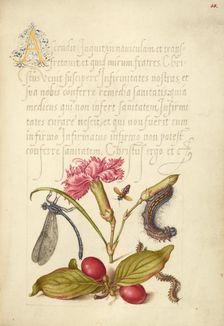 48.
Accedit Augustin nauculam et trans
fretauit et quid mirum fratres Chris
tus venit suscipere Infirmitates nostras et
sua nobis conferre remedia sanitatis: quia
medicus qui non infert sanitatem, Infirmi
tates curare nescit, et qui non fuerit cum
infirmo Infirmatus infirmo non potest
conferre sanitatem. Christus ergo et c